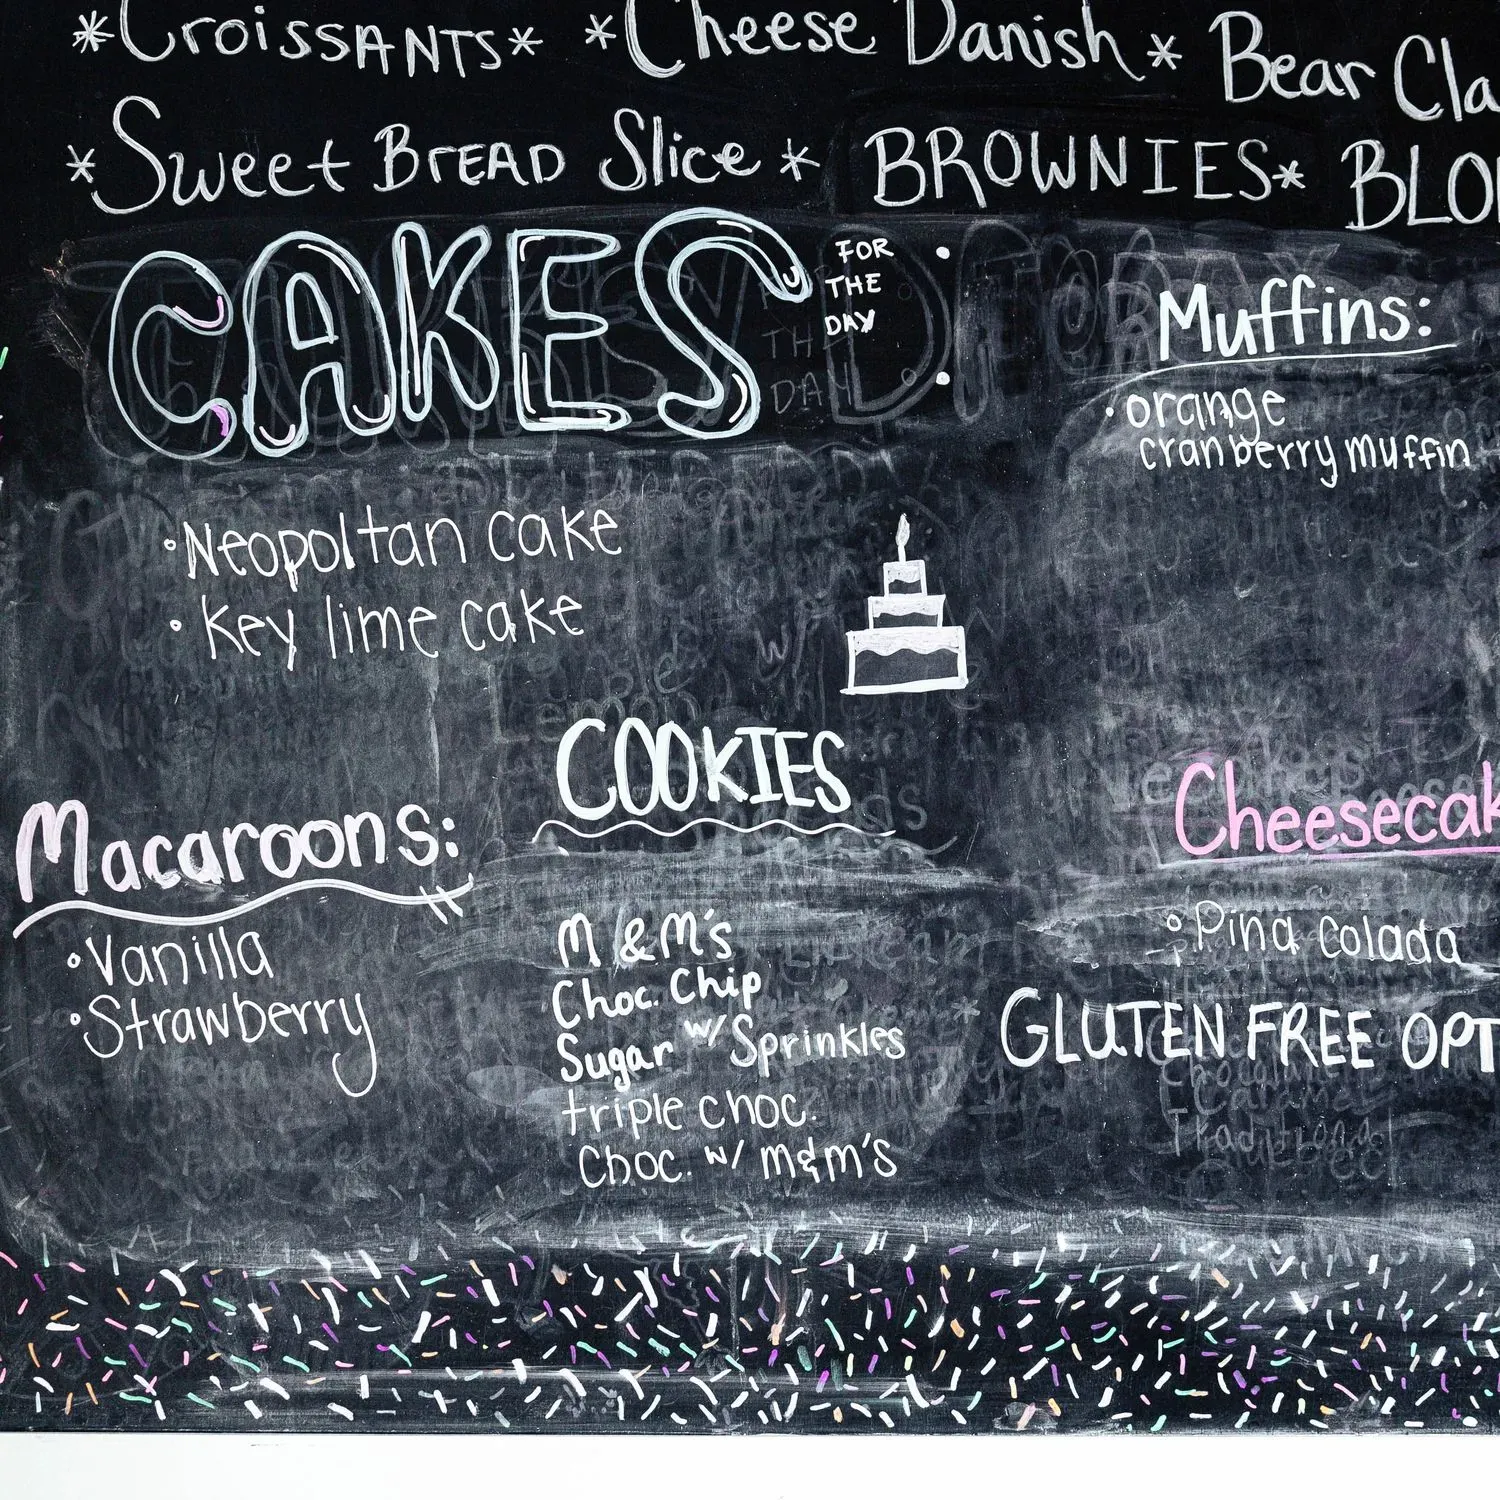 *Croissants* *Cheese Danish* Bear Cla
*Sweet Bread Slice* BROWNIES* BLO
CAKES FOR THE DAY:
Muffins:
• orange
cranberry muffin
• Neopoltan cake
• Key lime cake
COOKIES
M & M's
Choc. Chip
Sugar w/ Sprinkles
triple choc.
Choc. w/ m&m's
Macaroons:
• Vanilla
• Strawberry
Cheesecak
• Pina Colada
GLUTEN FREE OPT